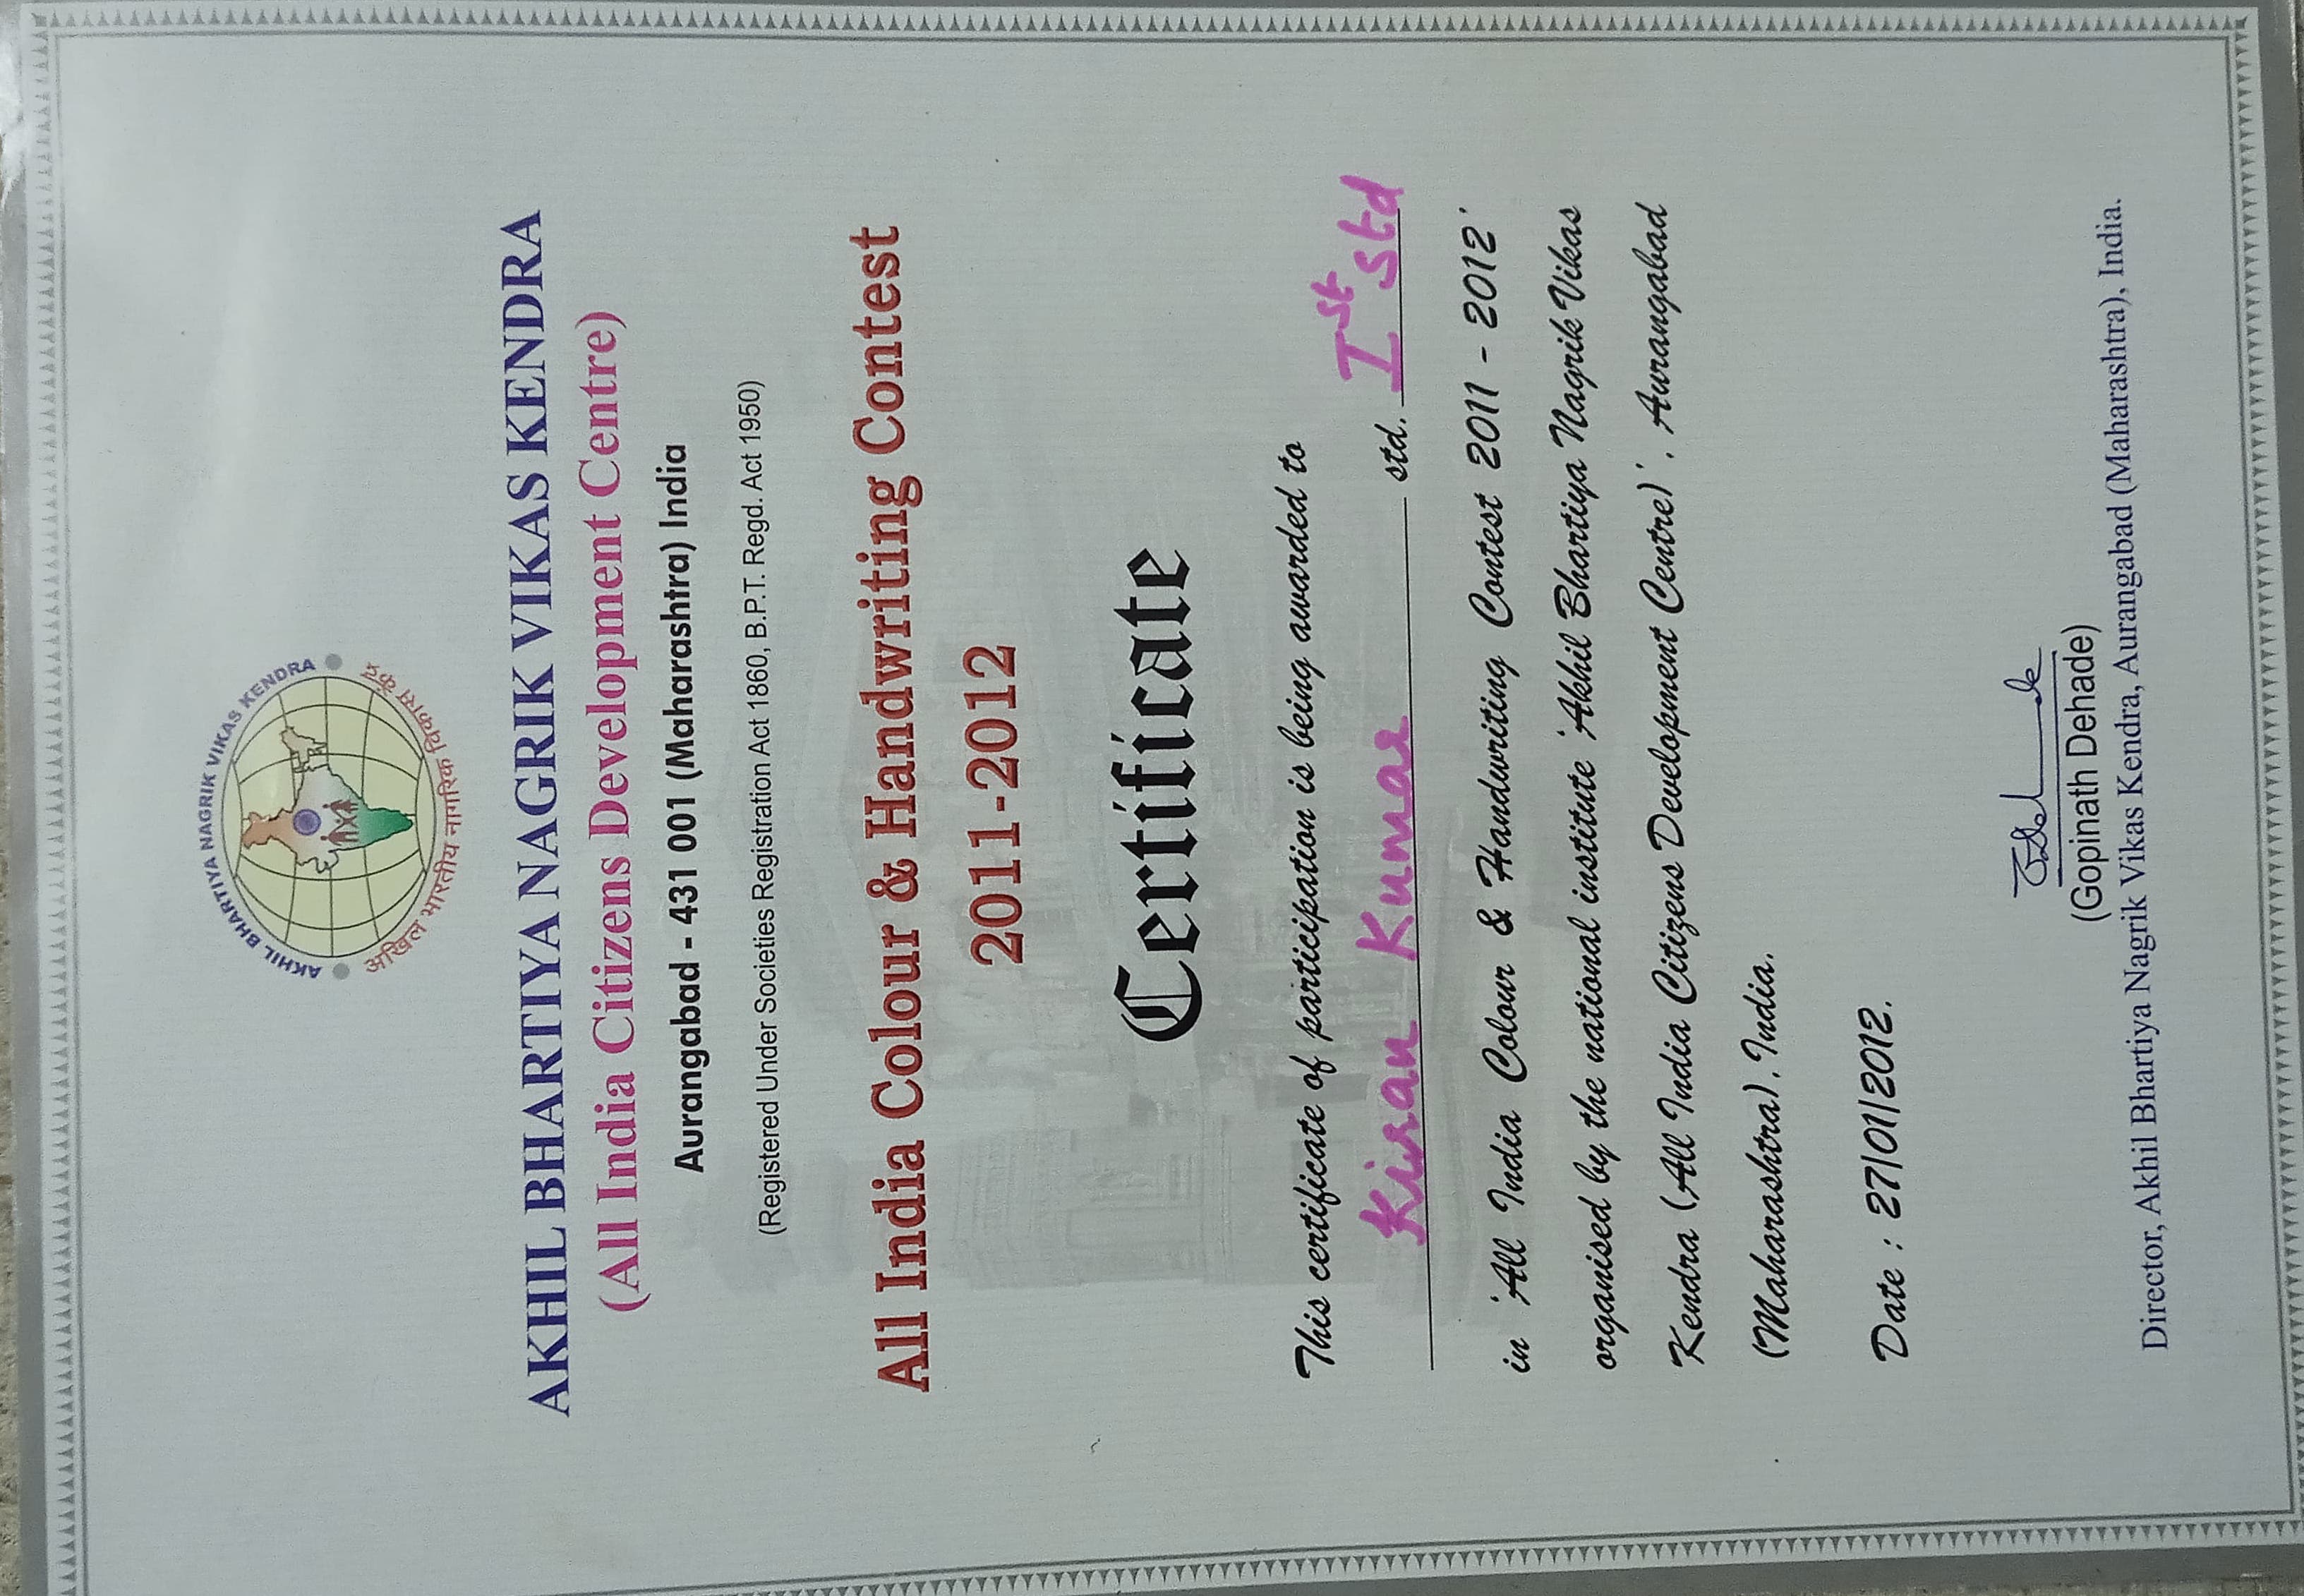 AKHIL BHARTIYA NAGRIK VIKAS KENDRA
अखिल भारतीय नागरिक विकास केंद्र
AKHIL BHARTIYA NAGRIK VIKAS KENDRA
(All India Citizens Development Centre)
Aurangabad - 431 001 (Maharashtra) India
(Registered Under Societies Registration Act 1860, B.P.T. Regd. Act 1950)
All India Colour & Handwriting Contest
2011-2012
Certificate
This certificate of participation is being awarded to
Kiran Kumar std. Ist std
in 'All India Colour & Handwriting Contest 2011 - 2012'
organised by the national institute 'Akhil Bhartiya Nagrik Vikas
Kendra (All India Citizens Development Centre)', Aurangabad
(Maharashtra), India.
Date : 27/01/2012.
(Gopinath Dehade)
Director, Akhil Bhartiya Nagrik Vikas Kendra, Aurangabad (Maharashtra), India.